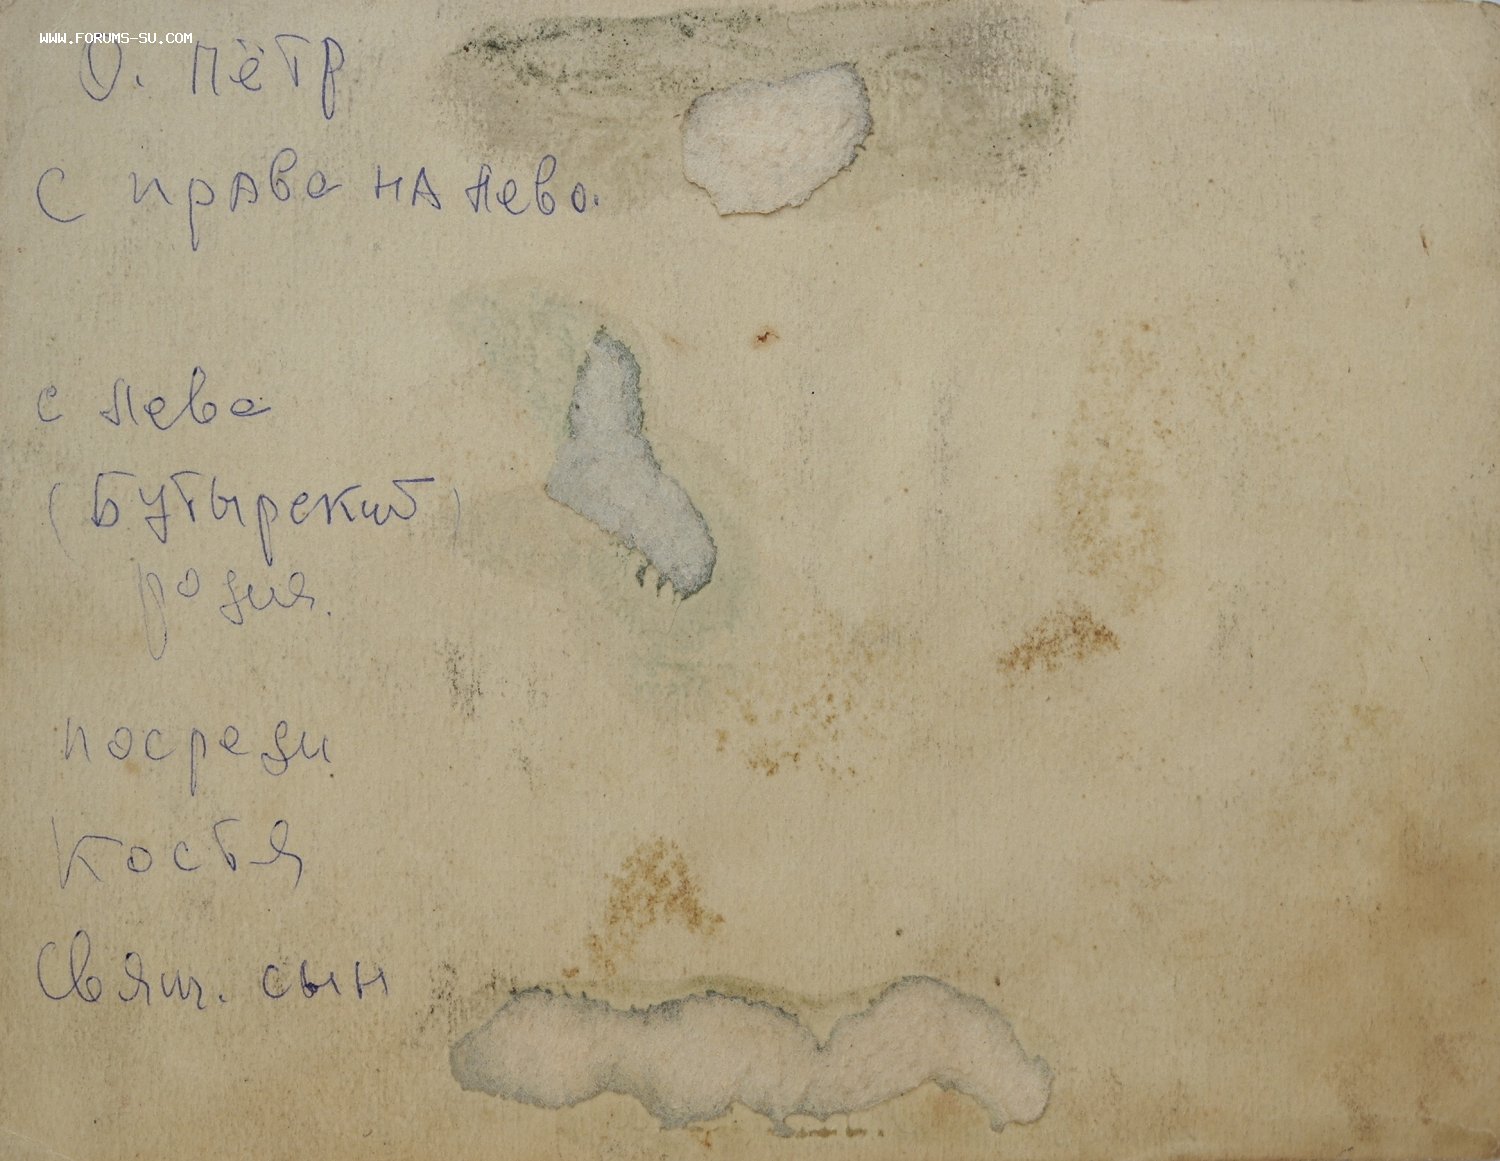 WWW.FORUMS-SU.COM
О. Пётр
С права на лево.
с лева
(Бутырский)
родня.
посреди
Костя
Свящ. сын